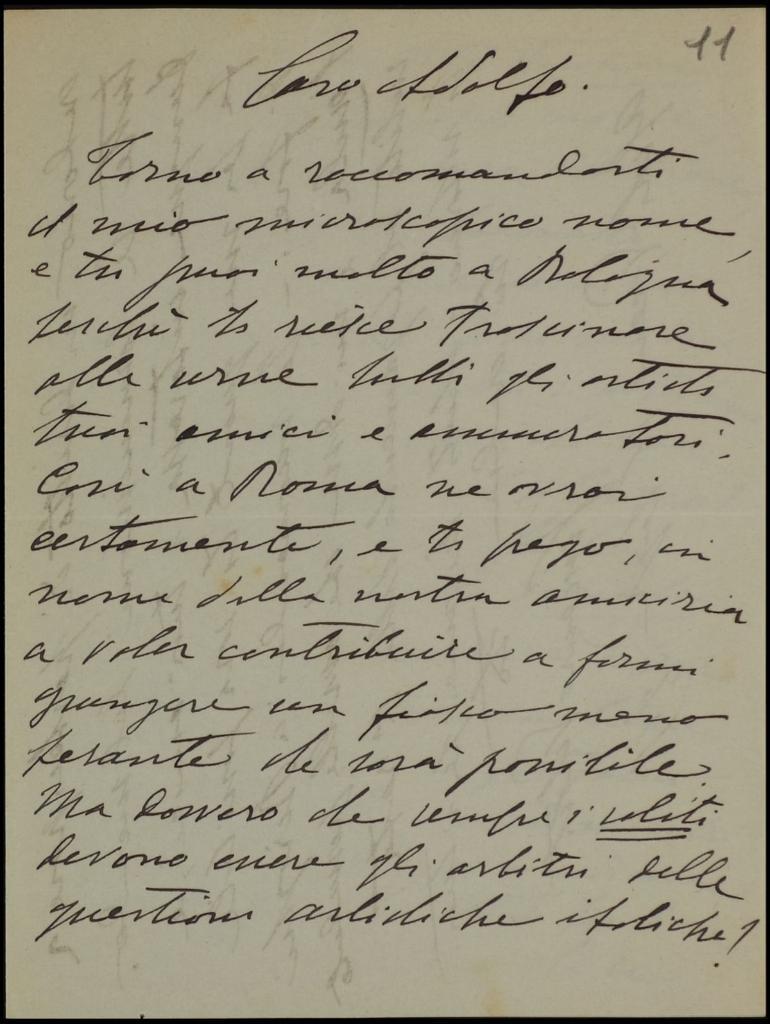 11
Caro Adolfo.
Torno a raccomandarti
il mio microscopico nome,
e tu puoi molto a Bologna
perchè ti riesce trascinare
alle urne tutti gli artisti
tuoi amici e ammiratori.
Così a Roma ne avrai
certamente, e ti prego, in
nome della nostra amicizia
a voler contribuire a farmi
giungere un fiasco meno
pesante che sarà possibile.
Ma davvero che sempre i soliti
devono essere gli arbitri delle
questioni artistiche italiche?